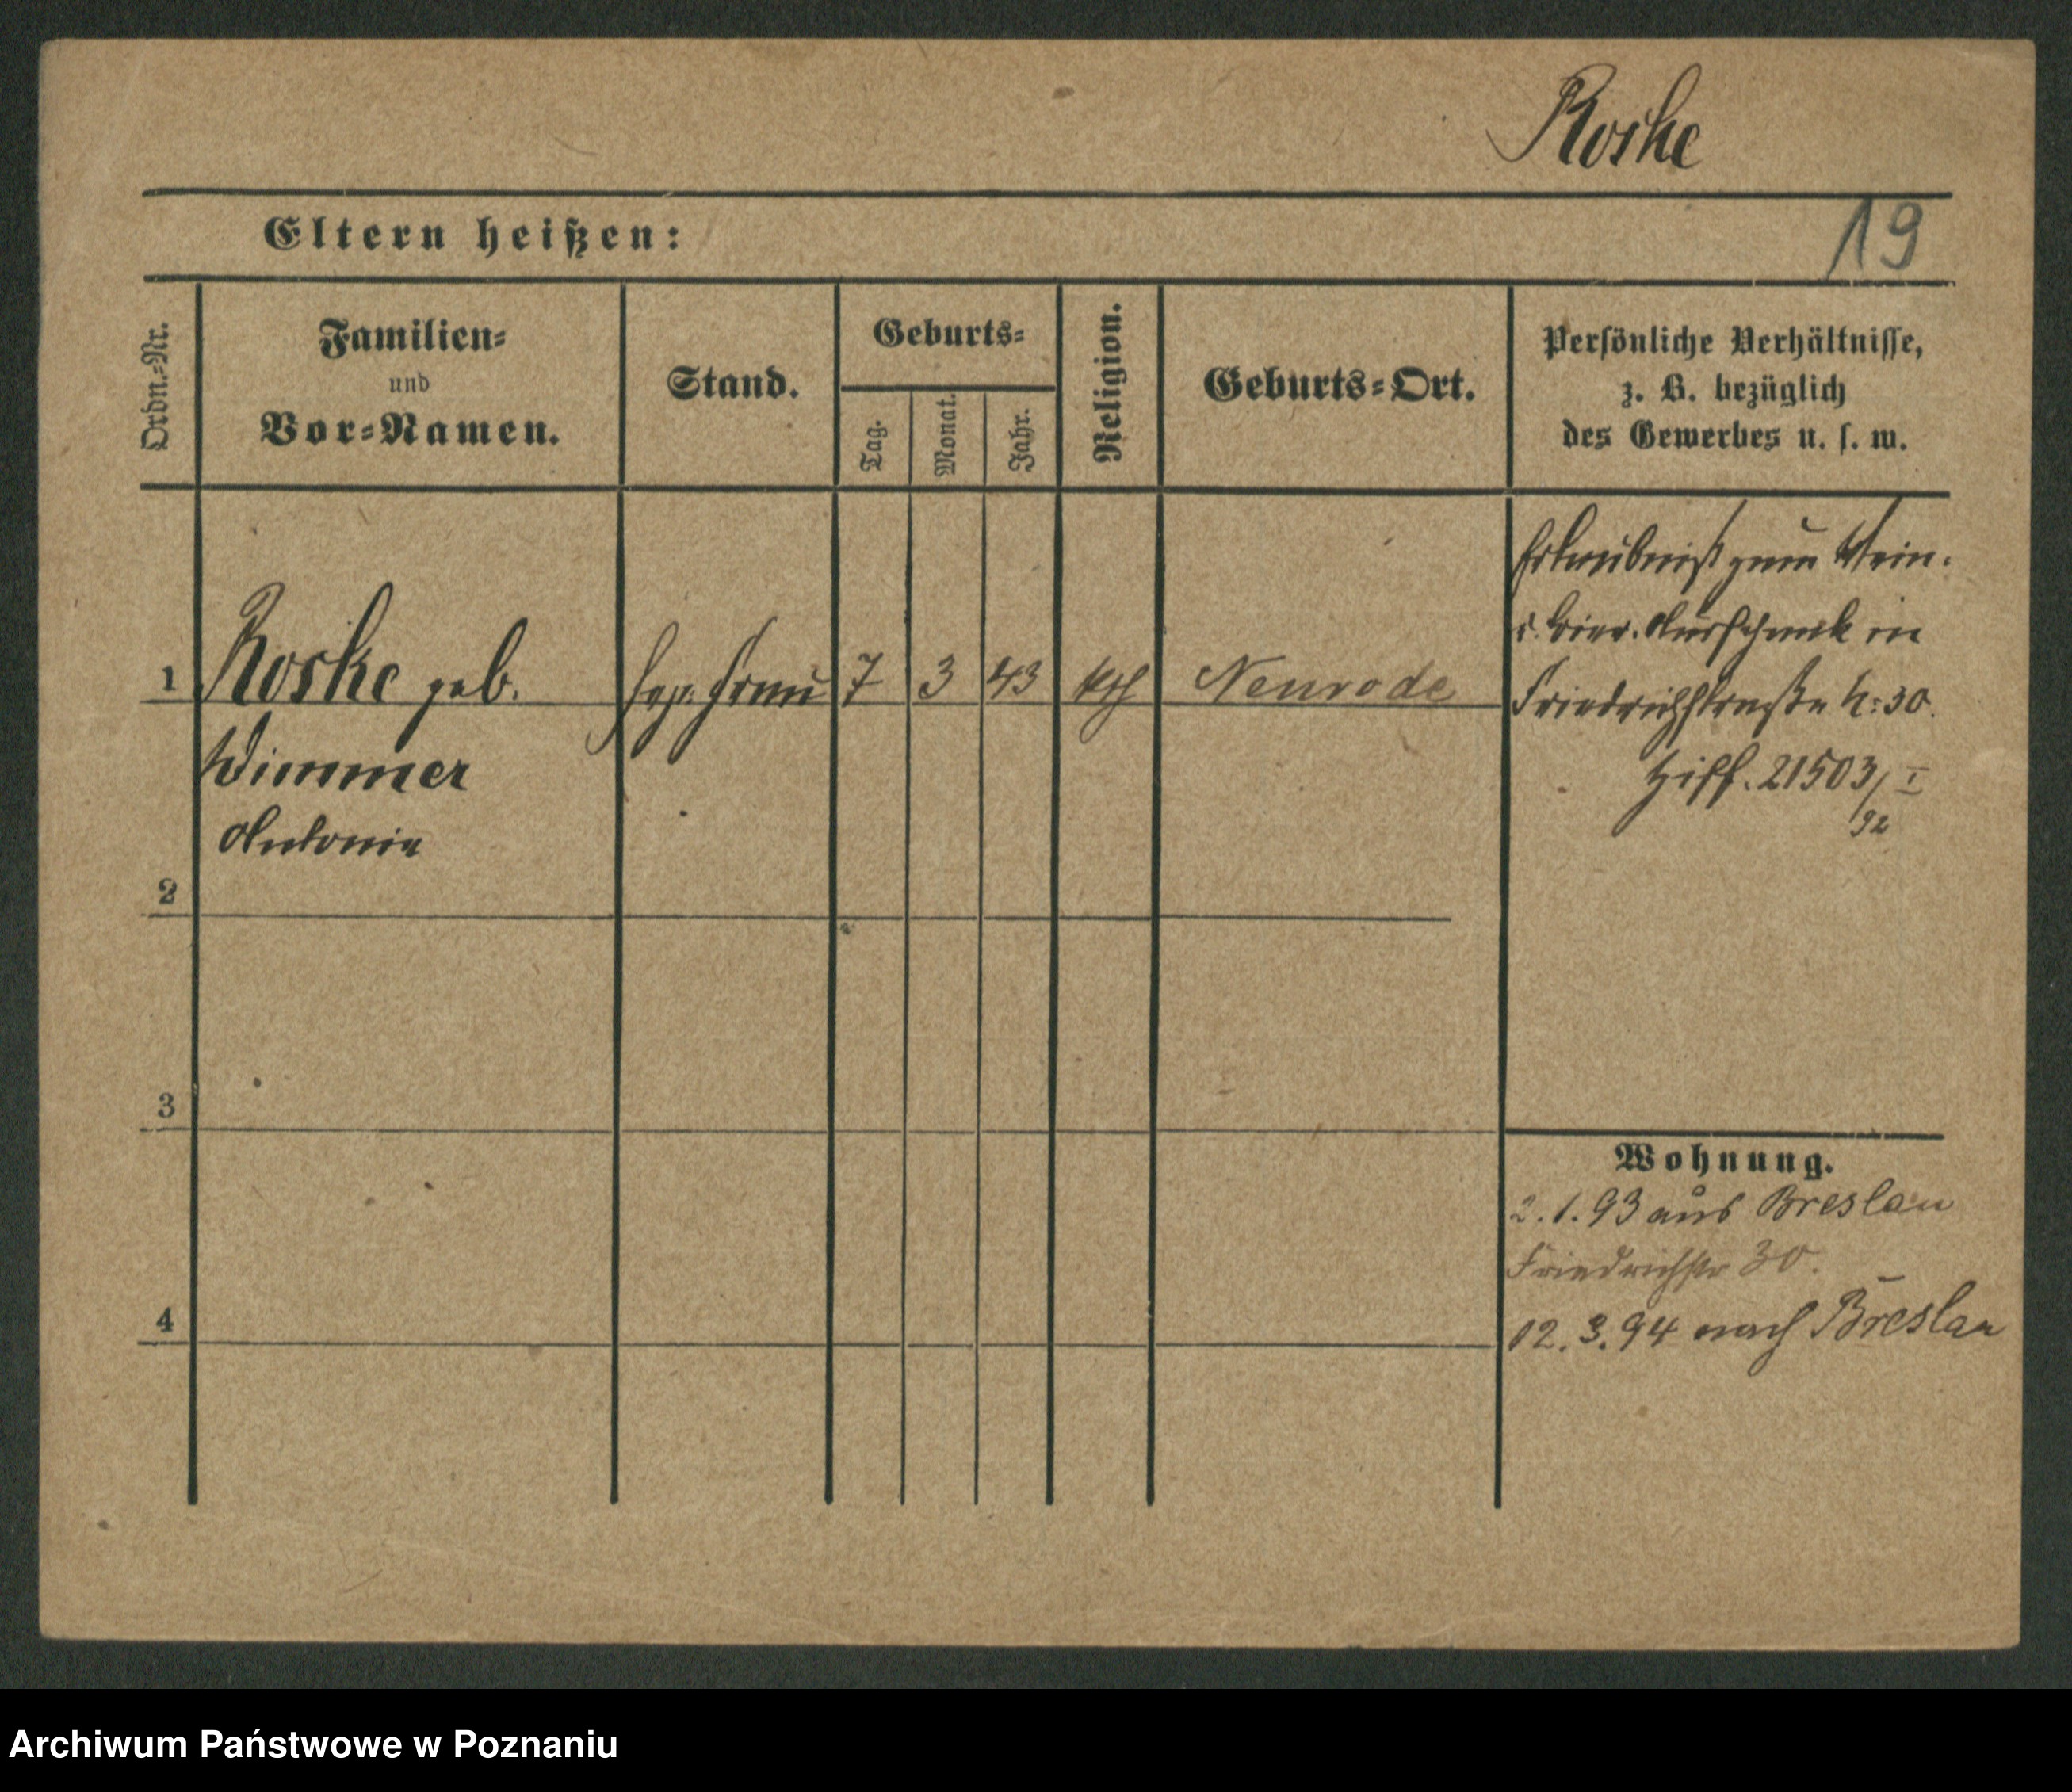 Roske
Eltern heißen:
19
Ordn.-Nr.
Familien-
und
Vor-Namen.
Stand.
Geburts-
Tag.
Monat.
Jahr.
Religion.
Geburts-Ort.
Persönliche Verhältnisse,
z. B. bezüglich
des Gewerbes u. s. w.
1
Roske geb.
Wimmer
Antonie
sep. Frau
7
3
43
kth
Neurode
Erlaubniß zum Wein-
u. Bier-Ausschank in
Friedrichstraße N: 30.
21503/I
92
2
3
4
Wohnung.
2.1.93 aus Breslau
Friedrichstr 30.
12.3.94 nach Breslau
Archiwum Państwowe w Poznaniu